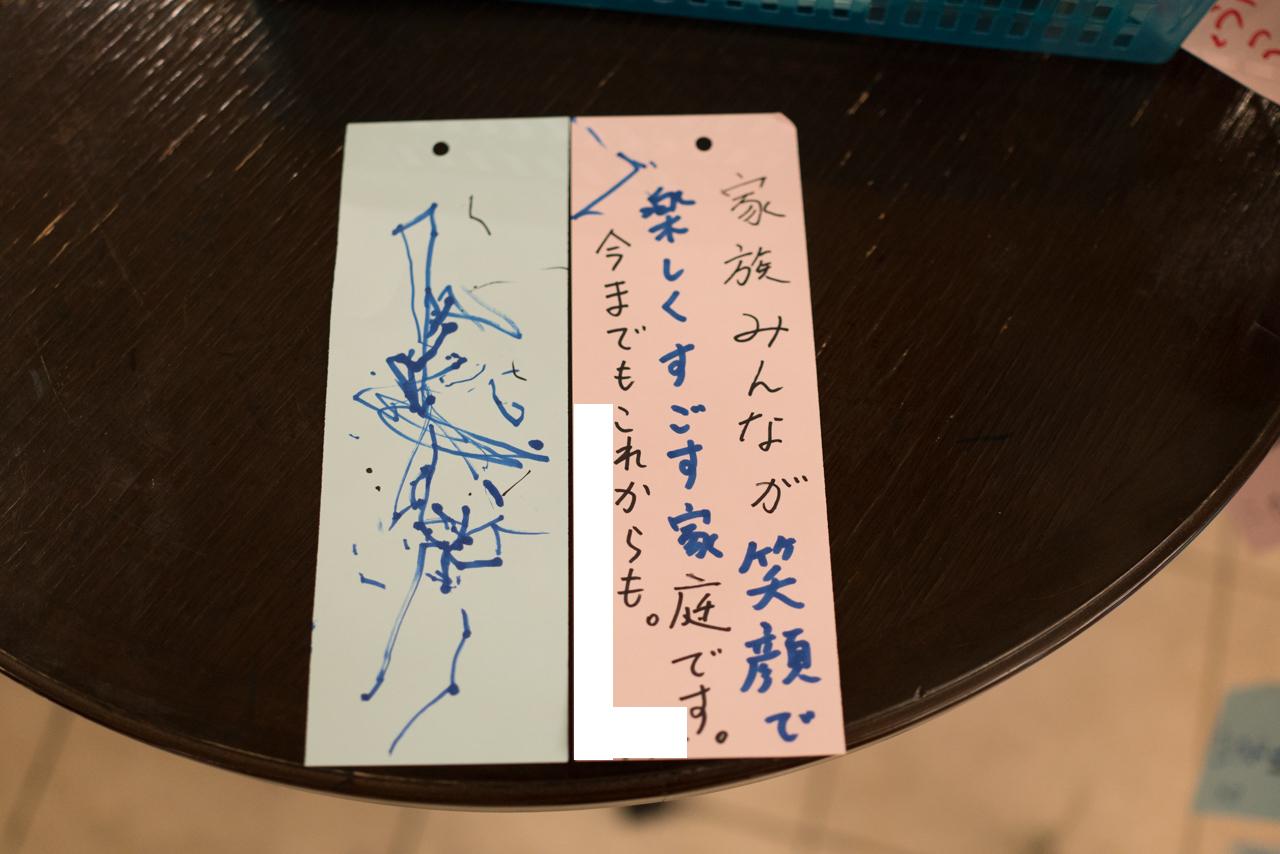 家族みんなが笑顔で
楽しくすごす家庭です。
今までもこれからも。